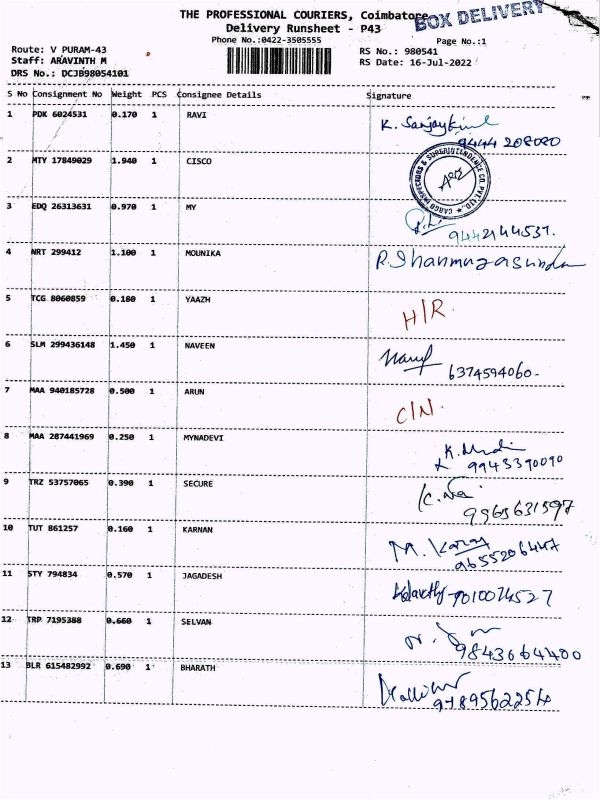 THE PROFESSIONAL COURIERS, Coimbatore
BOX DELIVERY
Delivery Runsheet - P43
Phone No.:0422-3505555
Page No.:1
Route: V PURAM-43
RS No.: 980541
Staff: ARAVINTH M
RS Date: 16-Jul-2022
DRS No.: DCJB98054101
S No Consignment No Weight PCS Consignee Details Signature
1 PDK 6024531 0.170 1 RAVI
9444 208080
2 MTY 17849029 1.940 1 CISCO
CARGO INSPECTORS & SUPERINTENDENCE CO. PVT. LTD.
3 EDQ 26313631 0.970 1 MY
9442144531.
4 NRT 299412 1.100 1 MOUNIKA
5 TCG 8060859 0.180 1 YAAZH
H/R.
6 SLM 299436148 1.450 1 NAVEEN
6374594060-
7 MAA 940185728 0.500 1 ARUN
C/N.
8 MAA 287441969 0.250 1 MYNADEVI
9943390090
9 TRZ 53757065 0.390 1 SECURE
9965631597
10 TUT 861257 0.160 1 KARNAN
9655206447
11 STY 794834 0.570 1 JAGADESH
7010074527
12 TRP 7195388 0.660 1 SELVAN
9843664400
13 BLR 615482992 0.690 1 BHARATH
9789562254